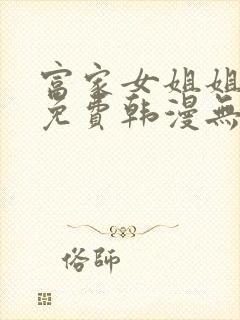 富家女姐姐
免費韩漫無
俗師